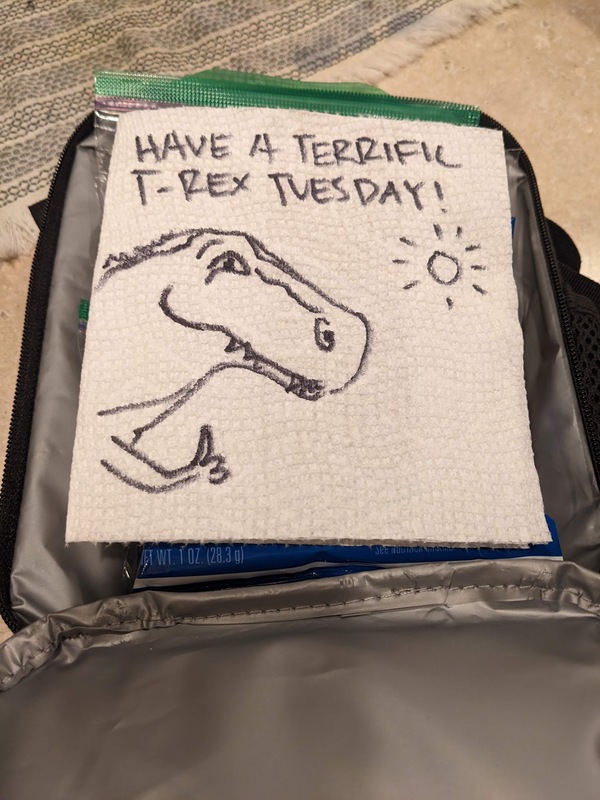 HAVE A TERRIFIC
T-REX TUESDAY!
ET WT. 1 OZ. (28.3 g)
SEE